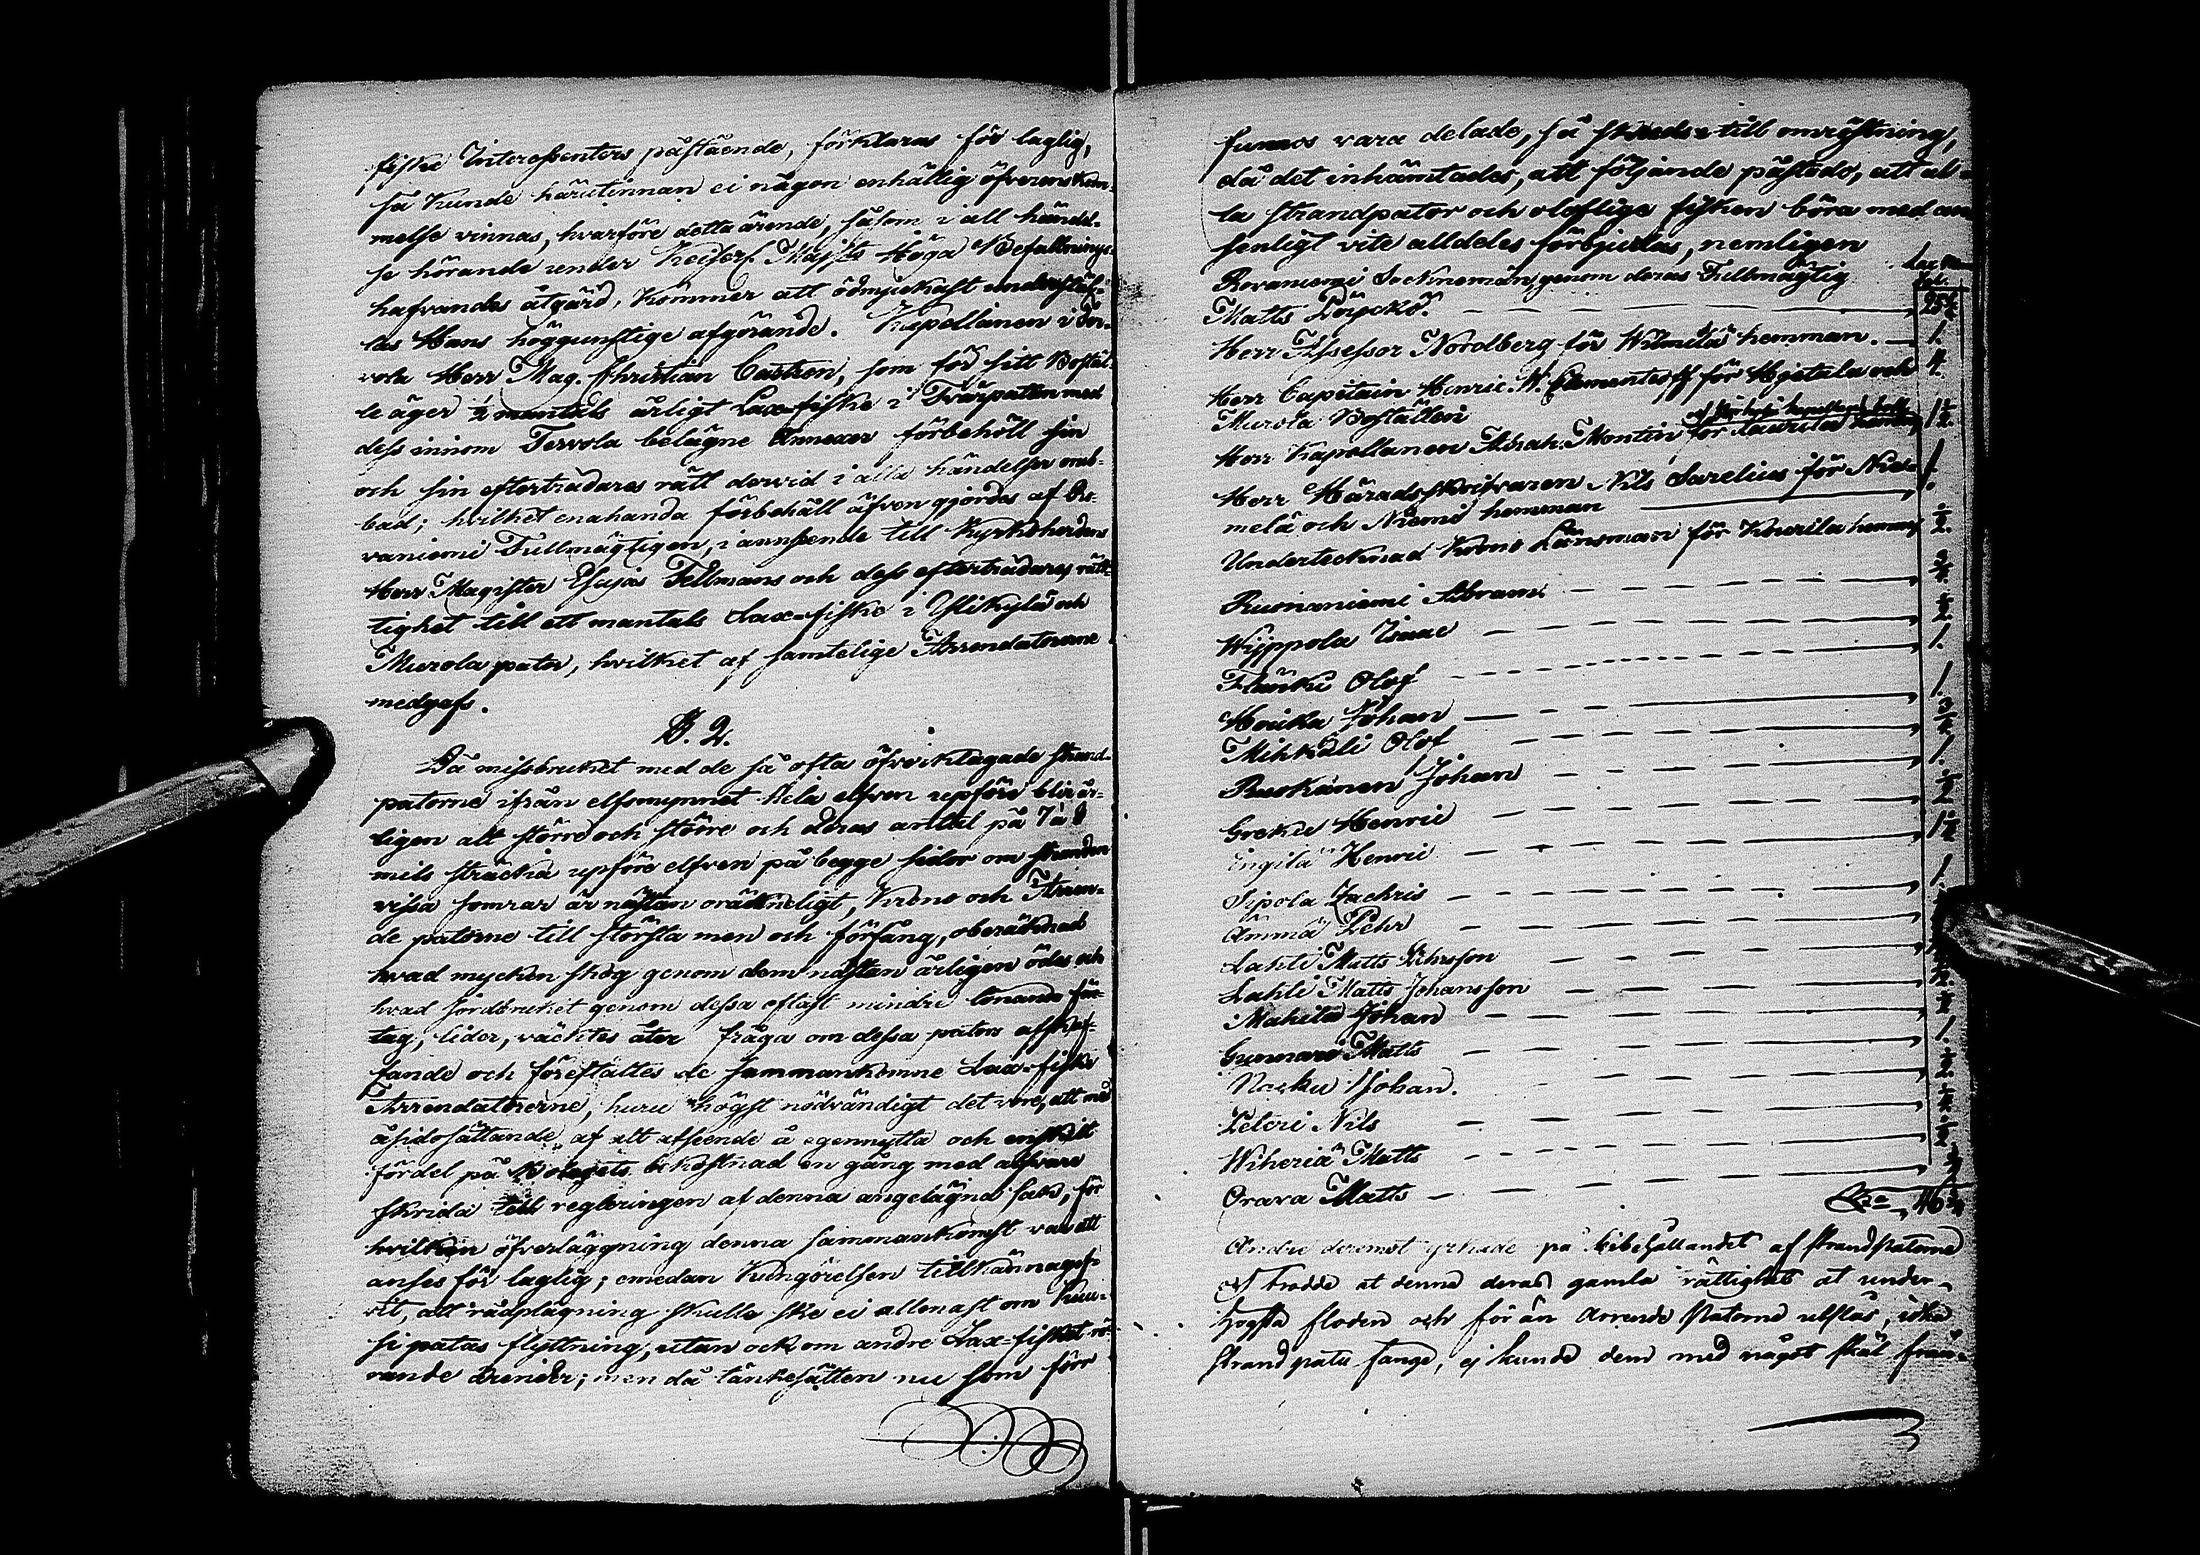 fiske Interessenters påstående, förklaras för laglig,
så kunde härutinnan ei någon enhällig öfverenskom-
melse vinnas, hvarföre detta ärende, såsom i all händel-
se hörande under Keiserl. Maj:ts Höga Befallnings-
hafvandes åtgärd, kommer att ödmjukast underställ-
las Hans höggunstige afgörande. Kapellanen i Ter-
vola Herr Mag. Christian Castren, som för sitt Boställ-
le äger ½ mantals årligt Lax-fiske i Tvärpatan med
dess innom Tervola belägne Annexer förbehöll sin
och sin efterträdares rätt dervid i alla händelser orub-
bad; hvilket enahanda förbehåll äfven gjordes af Ro-
vaniemi Fullmägtigen, i anseende till Kyrkoherdens
Herr Magister Esajas Fellmans och dess efterträdares rätt-
tighet till ett mantals Lax-fiske i Ylikylä och
Murola pator, hvilket af samtelige Arrendatorerne
medgafs.
§. 2.
Då missbruket med de så ofta öfverklagade strand-
patorne ifrån elfsmynnet hela elfven upföre blir år-
ligen allt större och större och deras antal på 7 à 8
mils sträcka upföre elfven på begge sidor om stranden
vissa somrar är nästan oräkneligt, Krono och Arren-
de patorne till största men och förfång, oberäknad
hvad mycken skog genom dem nästan årligen ödes och
hvad jordbruket genom dessa oftast mindre lönande före-
tag, lider, väcktes åter fråga om dessa pators afskaf-
fande och föreställtes de sammankomne Lax-fiske
Arrendatorerne, huru högst nödvändigt det vore, att med
åsidosättande af allt afseende å egennytta och enskilt
fördel på Bolagets bekostnad en gång med alfvare
skrida till regleringen af denna angelägna sak, för
hvilken öfverläggning denna sammankomst var att
anses för laglig; emedan Kungörelsen tillkännagif-
vit, att rådplägning skulle ske ei allenast om Kuu-
si patas flyttning, utan ock om andre Lax-fisket rö-
rande ärender; men då tänkesätten nu som förr
funnos vara delade, så skreds till omröstning,
då det inhämtades, att följande påstodo, att al-
la strandpator och olaflige fisken böra med an-
senligt vite alldeles förbjudas, nemligen
Rovaniemi Socknemän, genom deras Fullmägtig
Matts Pöyckö
Herr Assessor Nordberg för Wilmilä hemman. 1.
Herr Capitain Henric N. Clementeoff för Hjetala och 4.
Murola Boställen
Herr Kapellanen Abrah. Montin för Laurila heman 1½
Herr Häradsskrifvaren Nils Sarelius för Nie- 1.
melä och Niemi hemman
Undertecknad Krono Länsman för Knurila heman ½
Rusnaniemi Abram ¾
Wijppola Isaac ½
Flänki Olof 1.
Houika Johan 1.
Mihkäli Olof ¾
Ruokanen Johan 1.
Grekü Henric ½
Ingilä Henric 1½
Sipola Zachris 1
Ämmä Pehr
Lahti Matts Pehrsson
Lahti Matts Johansson
Makila Johan
Gunnari Matts 1.
Narku Johan. ½
Peteri Nils
Wiheriä Matts
Orava Matts
Andre deremot yrkade på bibehållandet af strandpatorne
och trodde at denna deras gamla rättighet at under
högsta floden och för än Arrende Patorne utslås, idka
strand pata fange, ej kunde dem med något skäl från-